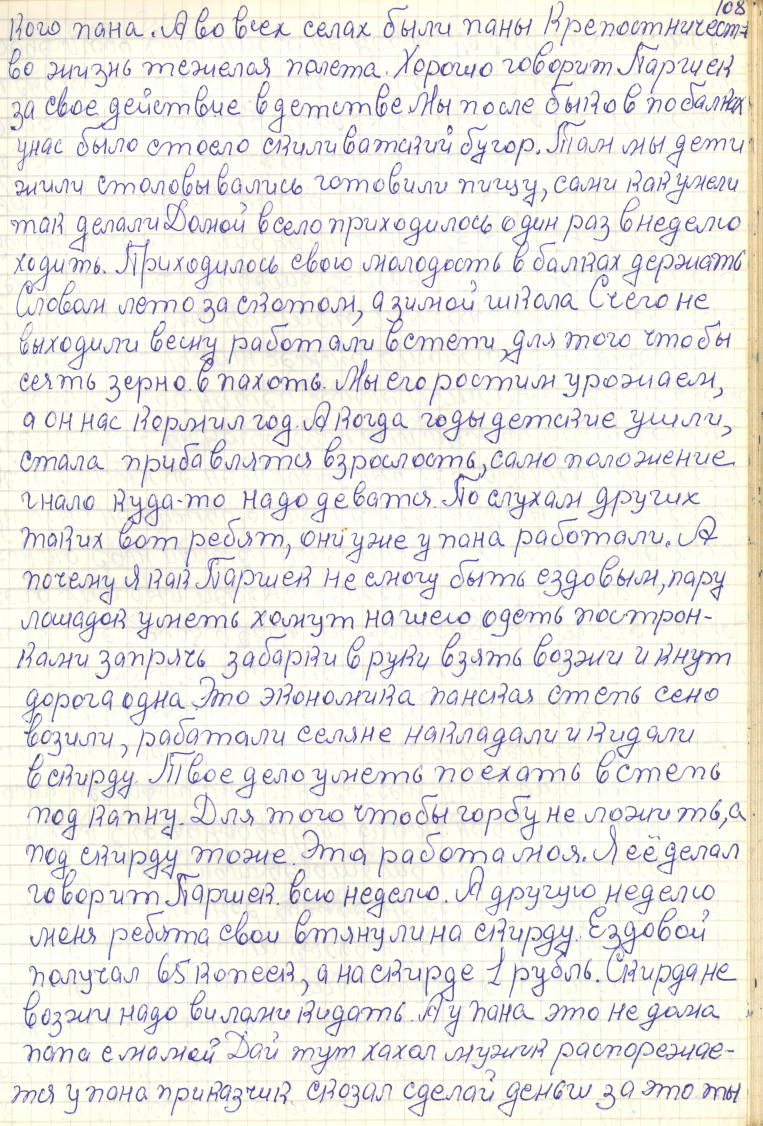 108
кого пана. А во всех селах были паны Крепостничест-
во жизнь тежелая полета. Хорошо говорит Паршек
за свое действие в детстве Мы после быков по балках
унас было стоело скиливатский бугор. Там мы дети
жили столовывались готовили пищу, сами как умели
так делали Домой в село приходилось один раз в неделю
ходить. Приходилось свою молодость в балках держать
Словом лето за скотом, а зимой школа С чего не
выходили весну работали в степи, для того чтобы
сеять зерно в пахоть. Мы его ростим урожаем,
а он нас кормил год. А когда годы детские ушли,
стала прибавлятся взрослость, само положение
гнало куда-то надо деватся. Послухам других
таких вот ребят, они уже у пана работали. А
почему я как Паршек не смогу быть ездовым, пару
лошадок уметь хомут на шею одеть построн-
ками запрячь забарки в руки взять возжи и кнут
дорога одна Это экономика панская степь сено
возили, рабатали селяне накладали и кидали
в скирду. Твое дело уметь поехать в степь
под капну. Для того чтобы горбу не ложить, а
под скирду тоже. Эта работа моя. Я её делал
говорит Паршек всю неделю. А другую неделю
меня ребята свои втянули на скирду. Ездовой
получал 65 копеек, а на скирде 1 рубль. Скирда не
возжи надо вилами кидать. А у пана это не дома
папа с мамой Дай тут хахол мужик распорежае-
тся у пана приказчик сказал сделай деньги за это ты